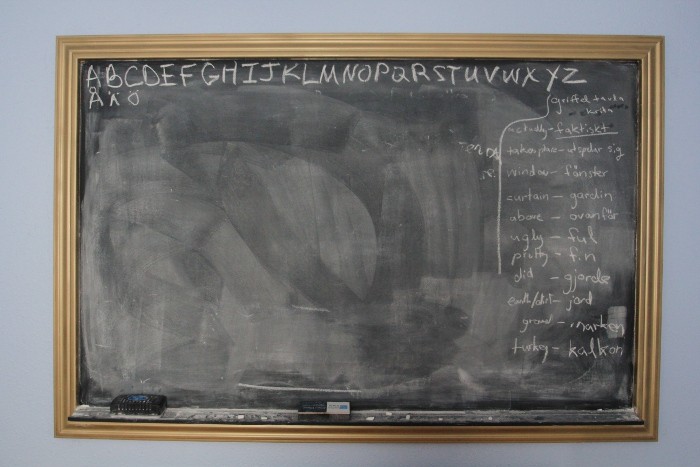 ABCDEFGHIJKLMNOPQRSTUVWXYZ
ÅÄÖ
griffeltavla
krita
actually - faktiskt
takes place - utspelar sig
window - fönster
curtain - gardin
above - ovanför
ugly - ful
pretty - fin
did - gjorde
earth/dirt - jord
ground - marken
turkey - kalkon